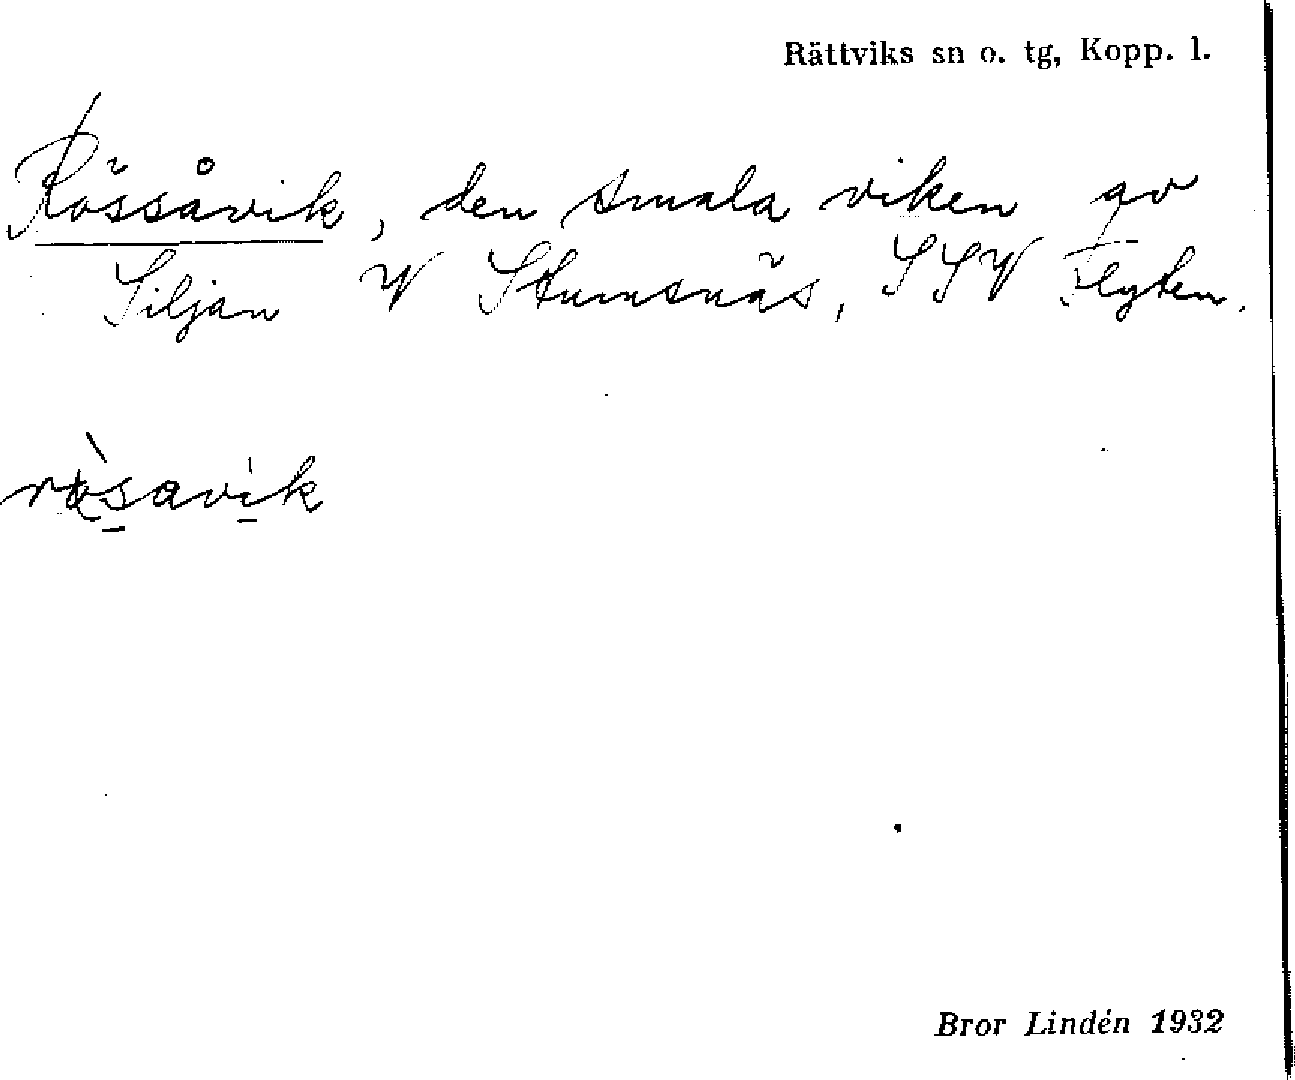 Rättviks sn o. tg, Kopp. l.
Rössåvik, den smala viken av
Siljan W Stumsnäs, SSV Flyten.
Bror Lindén 1932